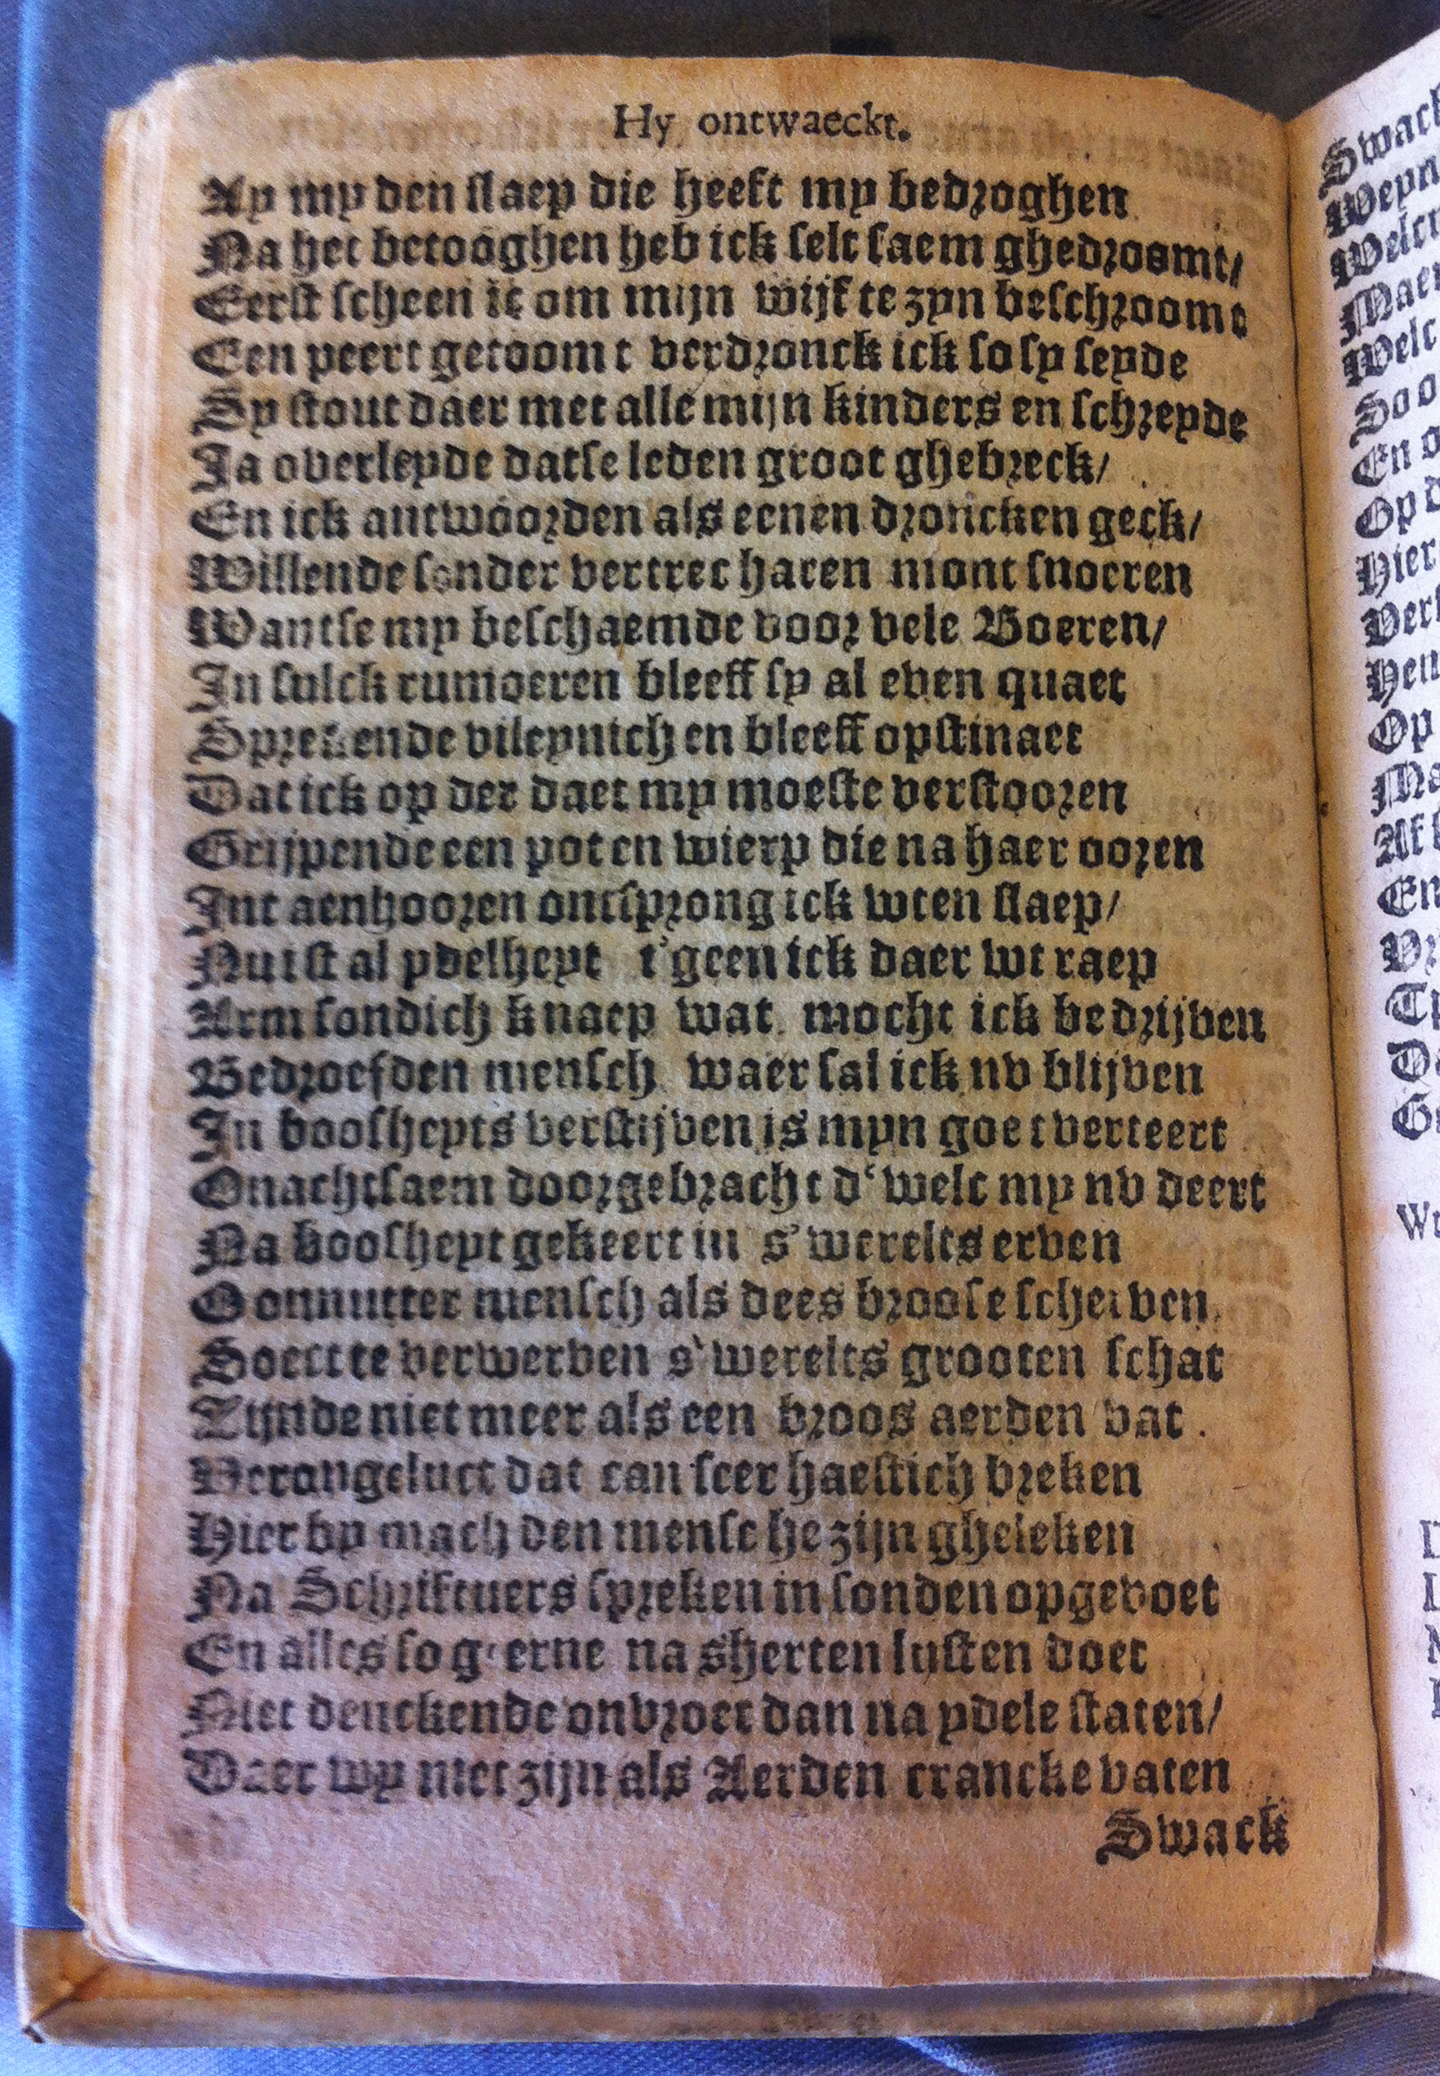 Hy ontwaeckt.
Ay my den slaep die heeft my bedroghen
Na het betooghen heb ick selt saem ghedroomt/
Eerst scheen ic om mijn wijf te zyn beschroomt
Een peert getoomt verdronck ick so sy seyde
Sy stout daer met alle mijn kinders en schreyde
Ja overleyde datse leden groot ghebreck/
En ick antwoorden als eenen droncken geck/
Willende sonder vertrec haren mont snoeren
Wantse my beschaemde voor vele Boeren/
In sulck rumoeren bleeff sy al even quaet
Sprekende vileynich en bleeff opstinaet
Dat ick op der daet my moeste verstooren
Grijpende een pot en wierp die na haer ooren
Int aenhooren ontsprong ick wten slaep/
Nu ist al ydelheyt t'geen ick daer wt raep
Arm sondich knaep wat mocht ick bedrijven
Bedroefden mensch waer sal ick nv blijven
In boosheyts verstijven is myn goet verteert
Onachtsaem doorgebracht d'welc my nv deert
Na boosheyt gekeert in s'werelts erven
O onnutter mensch als dees broose scherven
Soect te verwerven s'werelts grooten schat
Zijnde niet meer als een broos aerden vat.
Verongeluct dat can seer haestich breken
Hier by mach den mensche zijn gheleken
Na Schriftuers spreken in sonden opgevoet
En alles so geerne na sherten lusten doet
Niet denckende onvroet dan na ydele staten/
Daer wy niet zijn als Aerden crancke vaten
Swack
Swack
Weyn
Maer
Welc
Soo
En
Op
Hier
Op
En